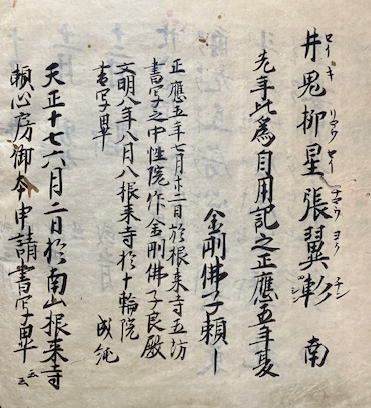 井鬼柳星張翼軫 南
セイ キ リウ セイ チヤウ ヨク チン
先年比為自用記之正應五年夏
金剛佛子頼ー
正應五年七月廿二日於根来寺五坊
書写之中性院作金剛佛子良殿
文明八年八月八根来寺於十輪院
書写畢 成純
天正十七六月二日於南山根来寺
頼心房御本申請書写畢